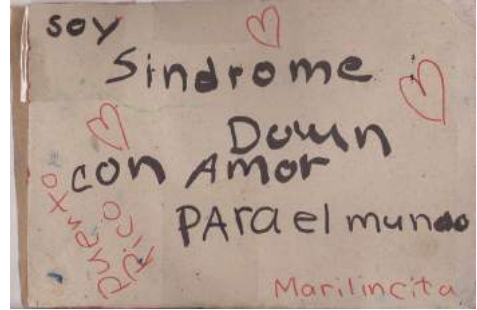 soy
Sindrome
Down
con Amor
PARa el mundo
Puerto
Rico
Marilincita